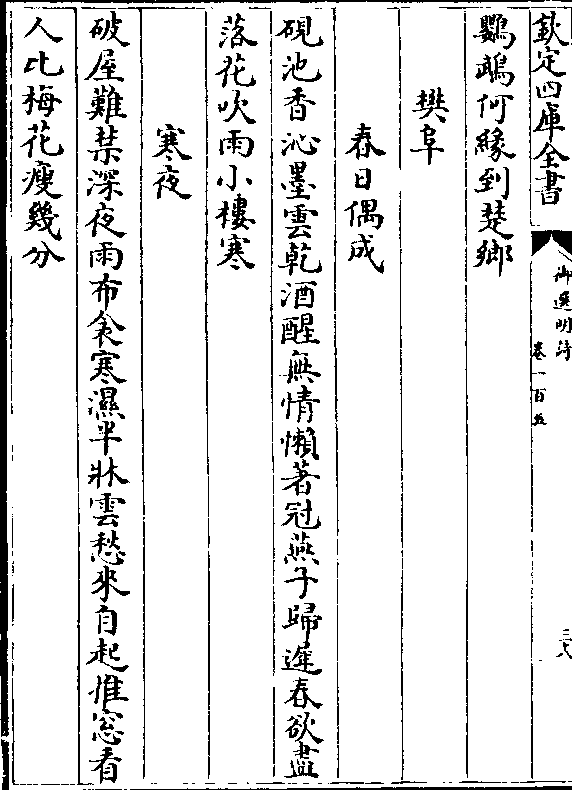 欽定四庫全書
御選明詩
卷一百五
三八
鸚鵡何緣到楚鄉
樊阜
春日偶成
硯池香沁墨雲乾酒醒無情懶著冠燕子歸遲春欲盡
落花吹雨小樓寒
寒夜
破屋難禁深夜雨布衾寒濕半牀雲愁來自起推窓看
人比梅花瘦幾分